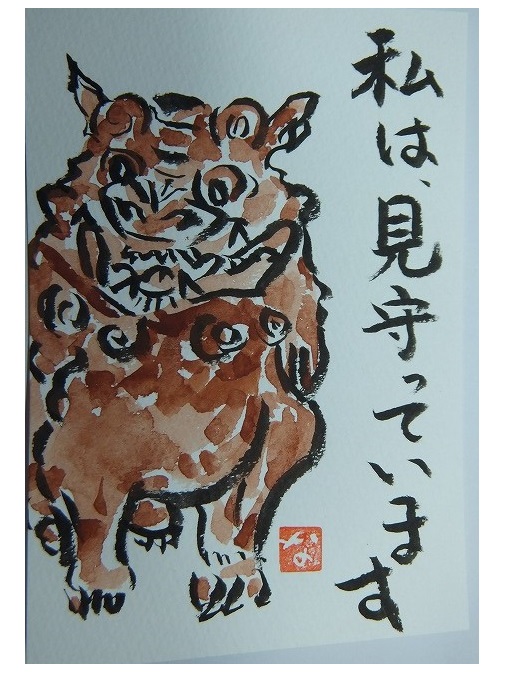 私は、見守っています